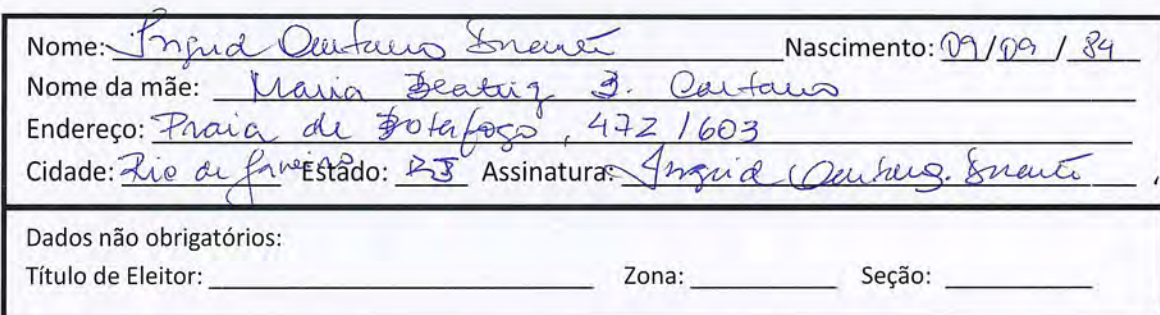 Nome: Ingrid Caetano Nascimento: 09/09/84
Nome da mãe: Maria Beatriz B. Caetano
Endereço: Praia de Botafogo, 472/603
Cidade: Rio de Janeiro Estado: RJ Assinatura: Ingrid Caetano
Dados não obrigatórios:
Título de Eleitor: Zona: Seção: